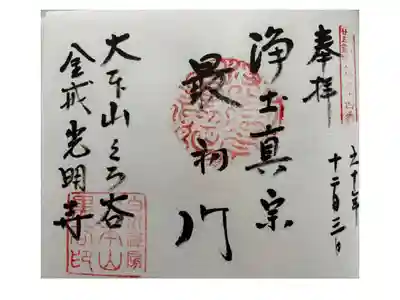 奉拝
六十年
十二月三日
浄土真宗
最初門
大本山くろ谷
金戒光明寺